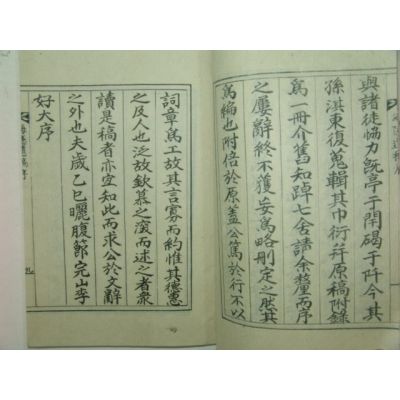 與諸徒協力旣亭于開碣于阡今其
孫淇東復蒐輯其巾衍幷原稿附錄
爲一冊介舊知踔七舍請余釐而序
之屢辭終不獲妄爲略刪定之然其
爲編也附倍於原蓋公篤於行不以
詞章爲工故其言寡而約惟其德惠
之及人也泛故欽慕之深而述之者衆
讀是稿者亦宜知此而求公於文辭
之外也夫歲乙巳曬腹節完山李
好大序